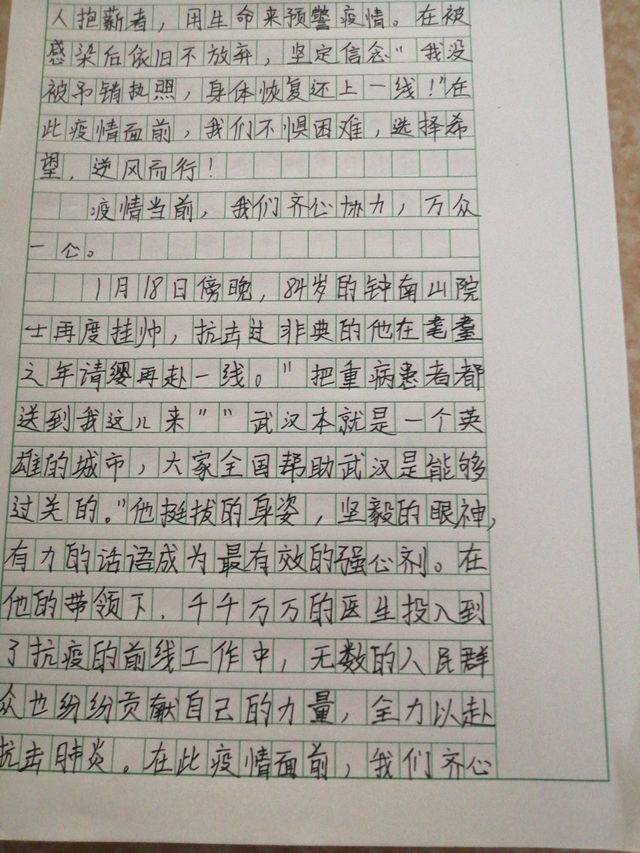 人抱薪者，用生命来预警疫情。在被
感染后依旧不放弃，坚定信念"我没
被吊销执照，身体恢复还上一线！"在
此疫情面前，我们不惧困难，选择希
望，逆风而行！
疫情当前，我们齐心协力，万众
一心。
1月18日傍晚，84岁的钟南山院
士再度挂帅，抗击过非典的他在耄耋
之年请缨再赴一线。"把重病患者都
送到我这儿来""武汉本就是一个英
雄的城市，大家全国帮助武汉是能够
过关的。"他挺拔的身姿，坚毅的眼神，
有力的话语成为最有效的强心剂。在
他的带领下，千千万万的医生投入到
了抗疫的前线工作中，无数的人民群
众也纷纷贡献自己的力量，全力以赴
抗击肺炎。在此疫情面前，我们齐心